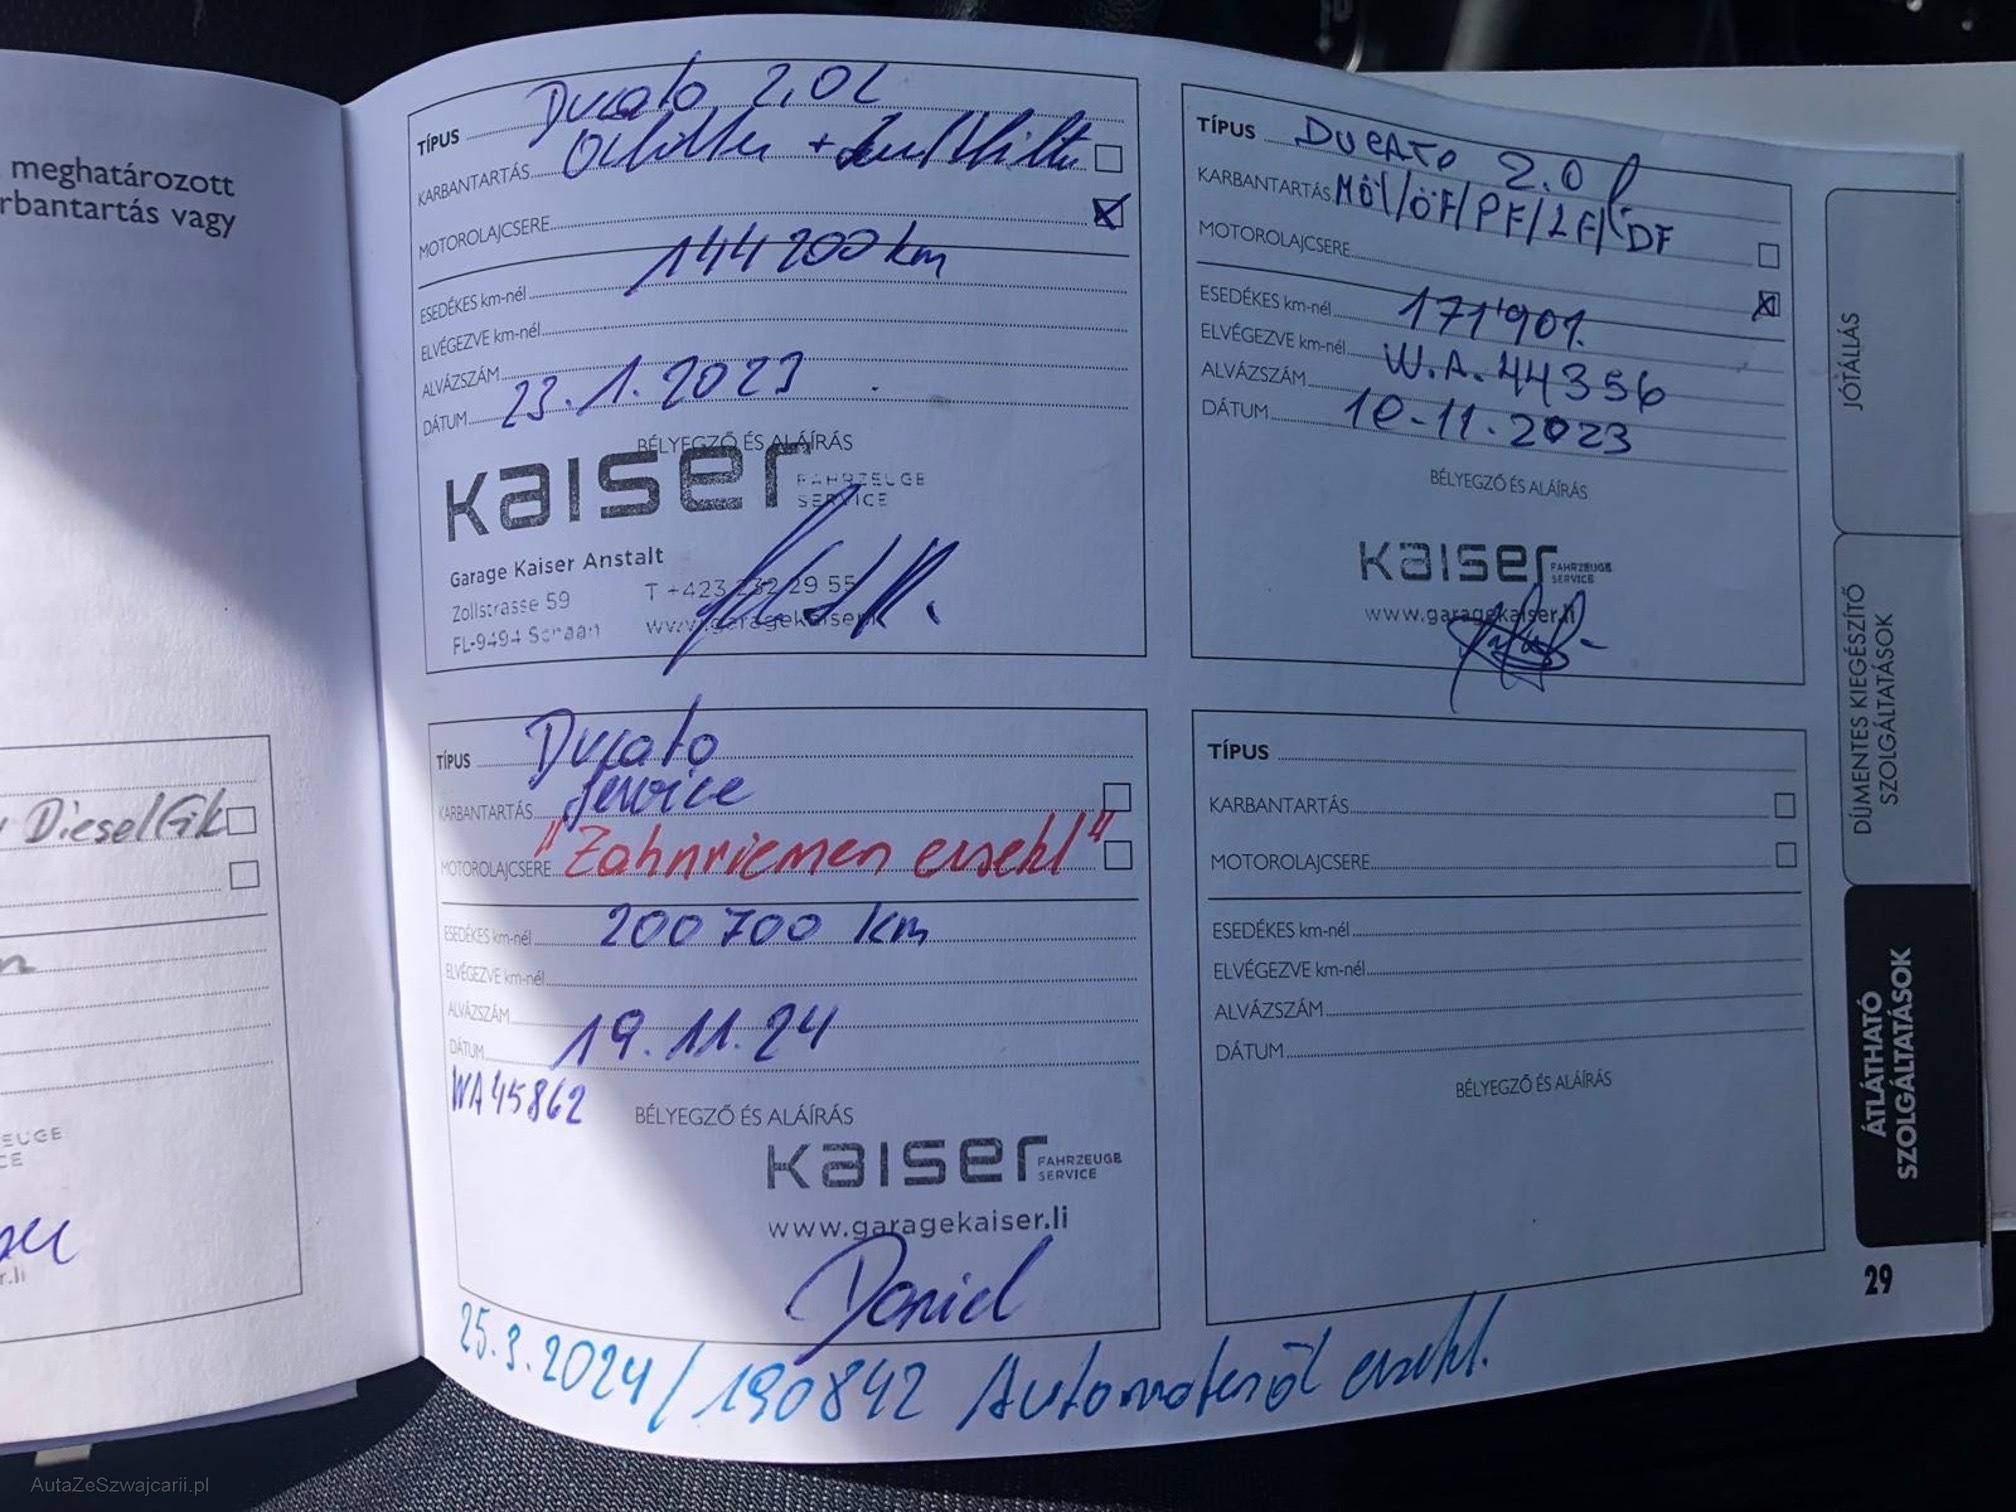 meghatározott
rbantartás vagy
DieselFilt
EUGE
CE
r.li
TÍPUS Ducato 2,0L
KARBANTARTÁS Oelfilter + Luftfilter
MOTOROLAJCSERE
144 200 km
ESEDÉKES km-nél
ELVÉGEZVE km-nél
ALVÁZSZÁM
DÁTUM 23.1.2023
BÉLYEGZŐ ÉS ALÁÍRÁS
Kaiser FAHRZEUGE
SERVICE
Garage Kaiser Anstalt
Zollstrasse 59 T +423 232 29 55
FL-9494 Schaan www.garagekaiser.li
TÍPUS DUCATO 2.0 l
KARBANTARTÁS Möl/ÖF/PF/LF/DF
MOTOROLAJCSERE
ESEDÉKES km-nél 171'901.
ELVÉGEZVE km-nél W.A. 44356
ALVÁZSZÁM
DÁTUM 10-11.2023
BÉLYEGZŐ ÉS ALÁÍRÁS
Kaiser FAHRZEUGE
SERVICE
www.garagekaiser.li
TÍPUS Ducato
KARBANTARTÁS Service
MOTOROLAJCSERE "Zahnriemen ersetzt"
ESEDÉKES km-nél 200 700 km
ELVÉGEZVE km-nél
ALVÁZSZÁM
DÁTUM 19.11.24
WA45862
BÉLYEGZŐ ÉS ALÁÍRÁS
Kaiser FAHRZEUGE
SERVICE
www.garagekaiser.li
Daniel
TÍPUS
KARBANTARTÁS
MOTOROLAJCSERE
ESEDÉKES km-nél
ELVÉGEZVE km-nél
ALVÁZSZÁM
DÁTUM
BÉLYEGZŐ ÉS ALÁÍRÁS
25.3.2024/190842 Automatenöl ersetzt.
JÓTÁLLÁS
DÍJMENTES KIEGÉSZÍTŐ
SZOLGÁLTATÁSOK
ÁTLÁTHATÓ
SZOLGÁLTATÁSOK
29
AutaZeSzwajcarii.pl